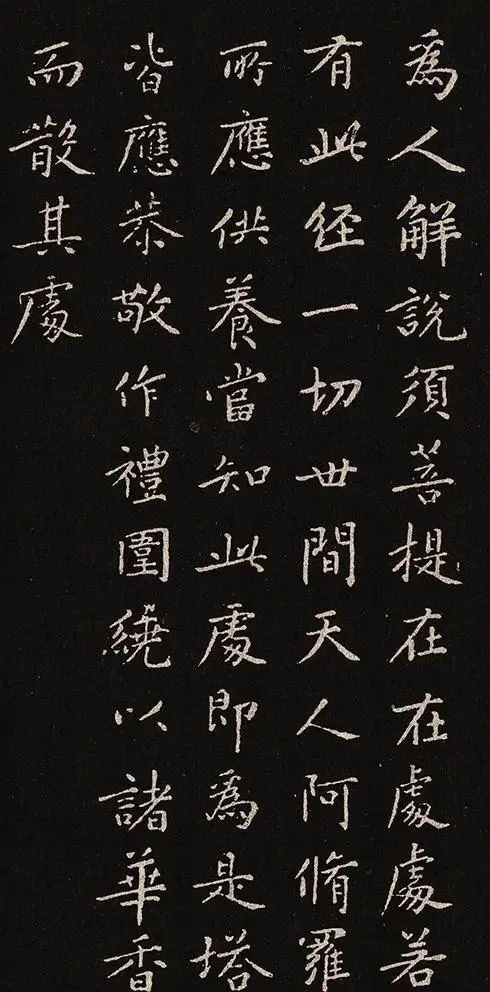 為人解說須菩提在在處處若
有此经一切世間天人阿脩羅
所應供養當知此處即為是塔
皆應恭敬作禮圍繞以諸華香
而散其處